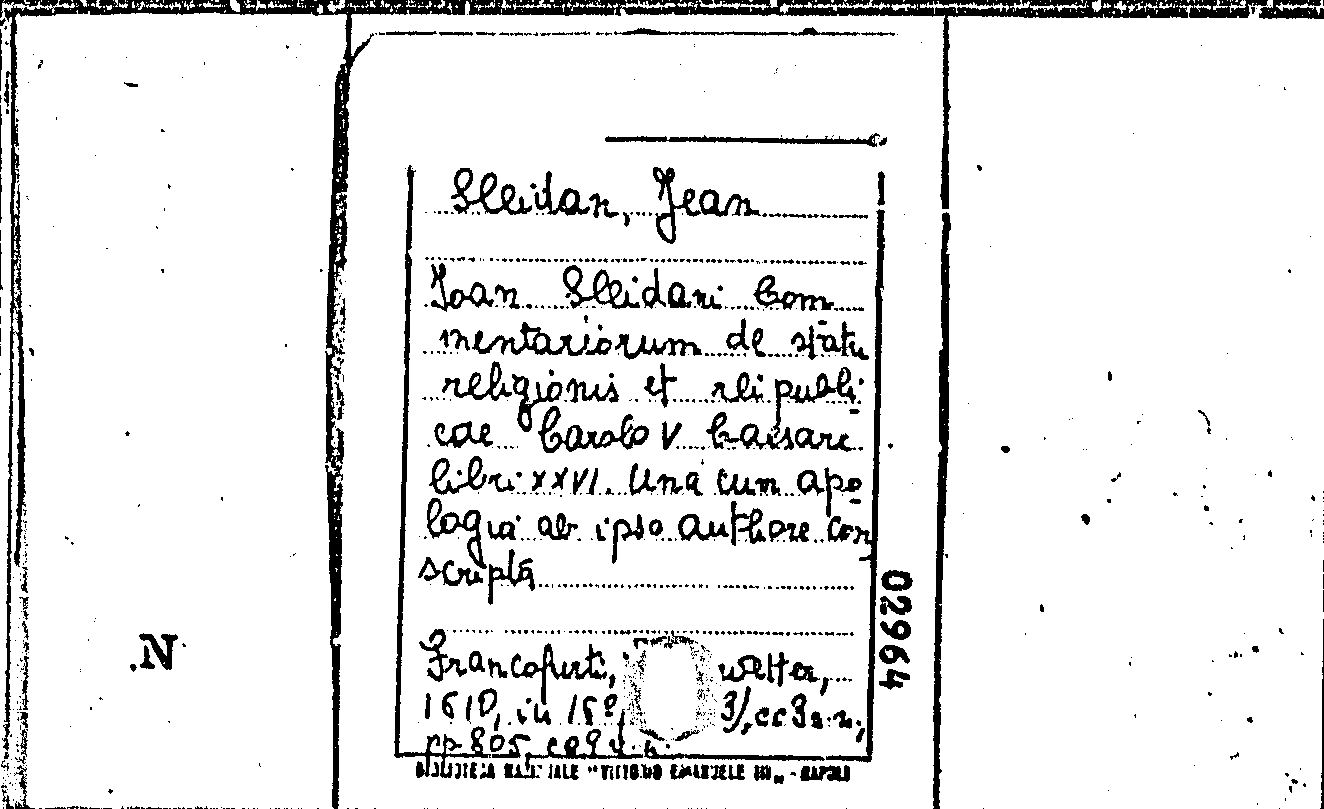 Sleidan, Jean
Joan Sleidani Com
mentariorum de statu
religionis et reipubli
cae Carolo V Caesare
libri XXVI. Una cum apo
logia ab ipso authore con
scripta
Francofurti, Walter,
1610, in 16°, 3/, cc 3 s.n.,
pp. 805,
BIBLIOTECA NAZIONALE "VITTORIO EMANUELE III" - NAPOLI
02964
.N